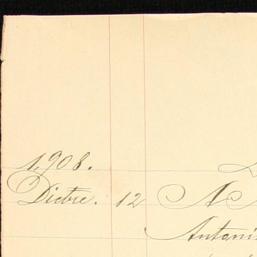 1,908.
Dicbre. 12 A
Antoni